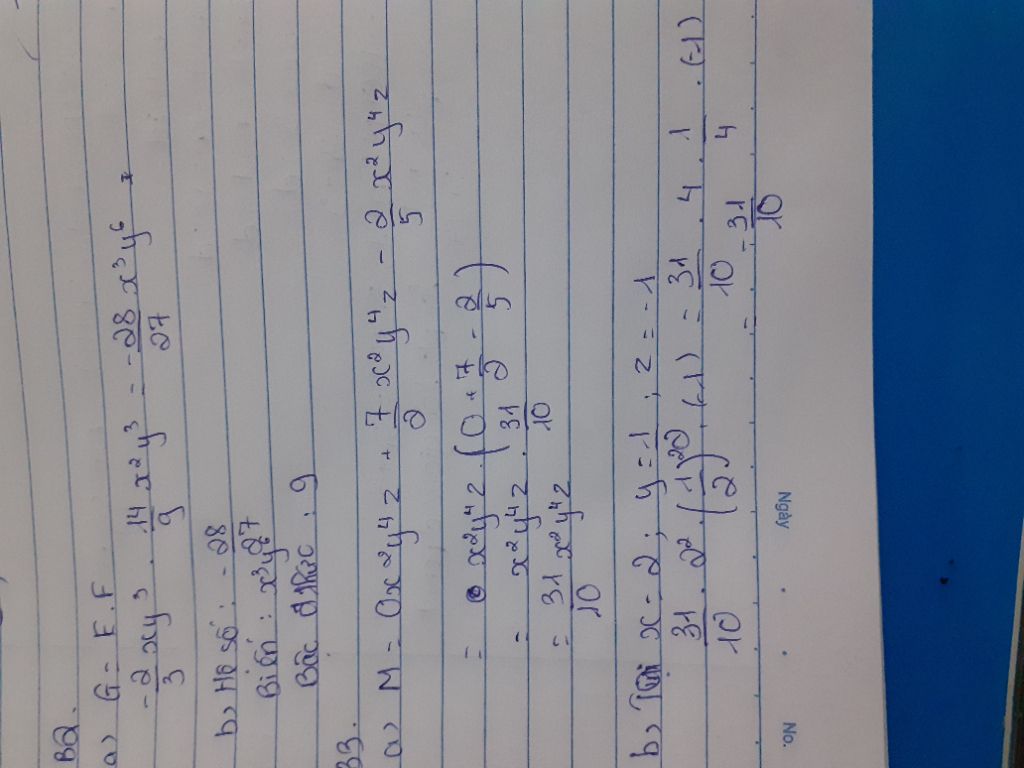 B2.
a) G = E.F
-2/3 xy³ . 14/9 x²y³ = -28/27 x³y⁶
b) Hệ số : -28/27
Biến : x³y⁶
Bậc đthức : 9
B3.
a) M = 0x²y⁴z + 7/2 x²y⁴z - 2/5 x²y⁴z
= x²y⁴z . (0 + 7/2 - 2/5)
= x²y⁴z . 31/10
= 31/10 x²y⁴z
b) Tại x = 2 ; y = 1/2 ; z = -1
31/10 . 2² . (1/2)²⁰ . (-1) = 31/10 . 4 . 1/4 . (-1)
= -31/10
Ngày
No.